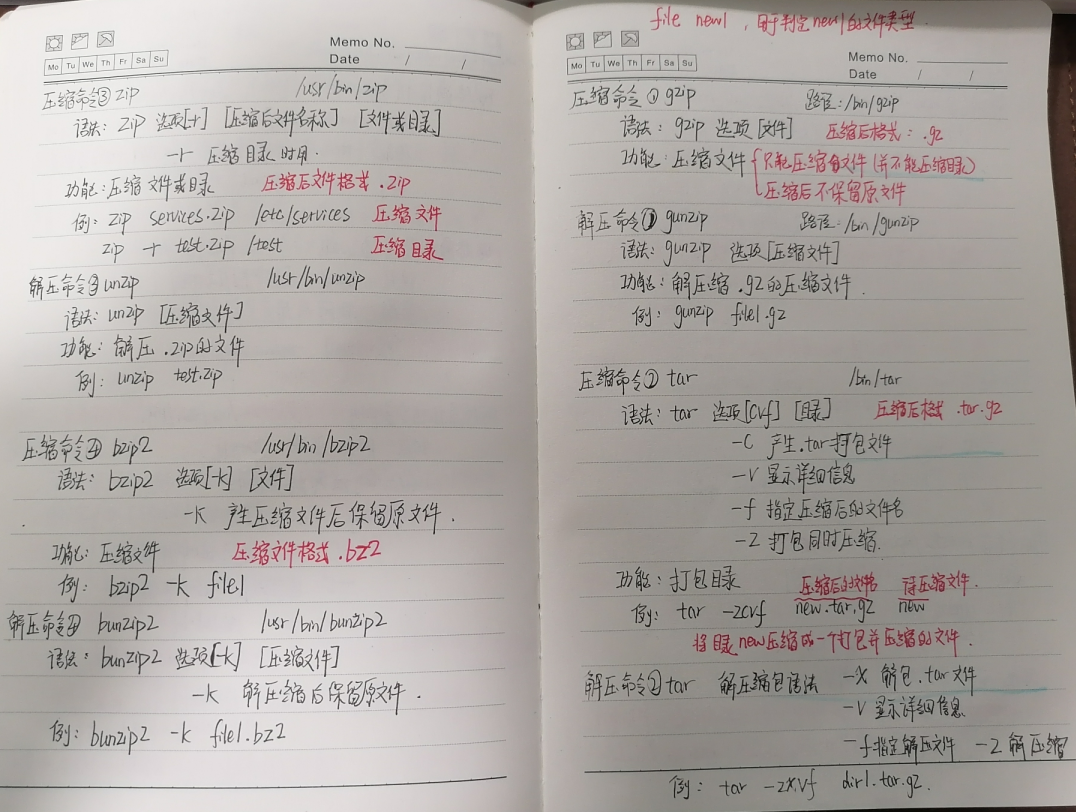 Memo No.
Mo Tu We Th Fr Sa Su
Date / /
压缩命令③ zip /usr/bin/zip
语法: zip 选项[-r] [压缩后文件名称] [文件或目录]
-r 压缩目录时用.
功能: 压缩文件或目录 压缩后文件格式 .zip
例: zip services.zip /etc/services 压缩文件
zip -r test.zip /test 压缩目录
解压命令③ unzip /usr/bin/unzip
语法: unzip [压缩文件]
功能: 解压 .zip的文件
例: unzip test.zip
压缩命令④ bzip2 /usr/bin/bzip2
语法: bzip2 选项[-k] [文件]
-k 产生压缩文件后保留原文件.
功能: 压缩文件 压缩文件格式 .bz2
例: bzip2 -k file1
解压命令④ bunzip2 /usr/bin/bunzip2
语法: bunzip2 选项[-k] [压缩文件]
-k 解压缩后保留原文件.
例: bunzip2 -k file1.bz2
file new1 , 用于判定new1的文件类型.
Memo No.
Mo Tu We Th Fr Sa Su
Date / /
压缩命令① gzip 路径: /bin/gzip
语法: gzip 选项[文件] 压缩后格式: .gz
功能: 压缩文件 只能压缩文件(并不能压缩目录)
压缩后不保留原文件
解压命令① gunzip 路径: /bin/gunzip
语法: gunzip 选项[压缩文件]
功能: 解压缩 .gz的压缩文件.
例: gunzip file1.gz
压缩命令② tar /bin/tar
语法: tar 选项[cvf] [目录] 压缩后格式 .tar.gz
-c 产生.tar打包文件
-v 显示详细信息
-f 指定压缩后的文件名
-z 打包同时压缩.
功能: 打包目录 压缩后的文件名 待压缩文件.
例: tar -zcvf new.tar.gz new
将目录new压缩成一个打包并压缩的文件.
解压命令② tar 解压缩包语法 -x 解包.tar文件
-v 显示详细信息.
-f 指定解压文件 -z 解压缩
例: tar -zxvf dir1.tar.gz.